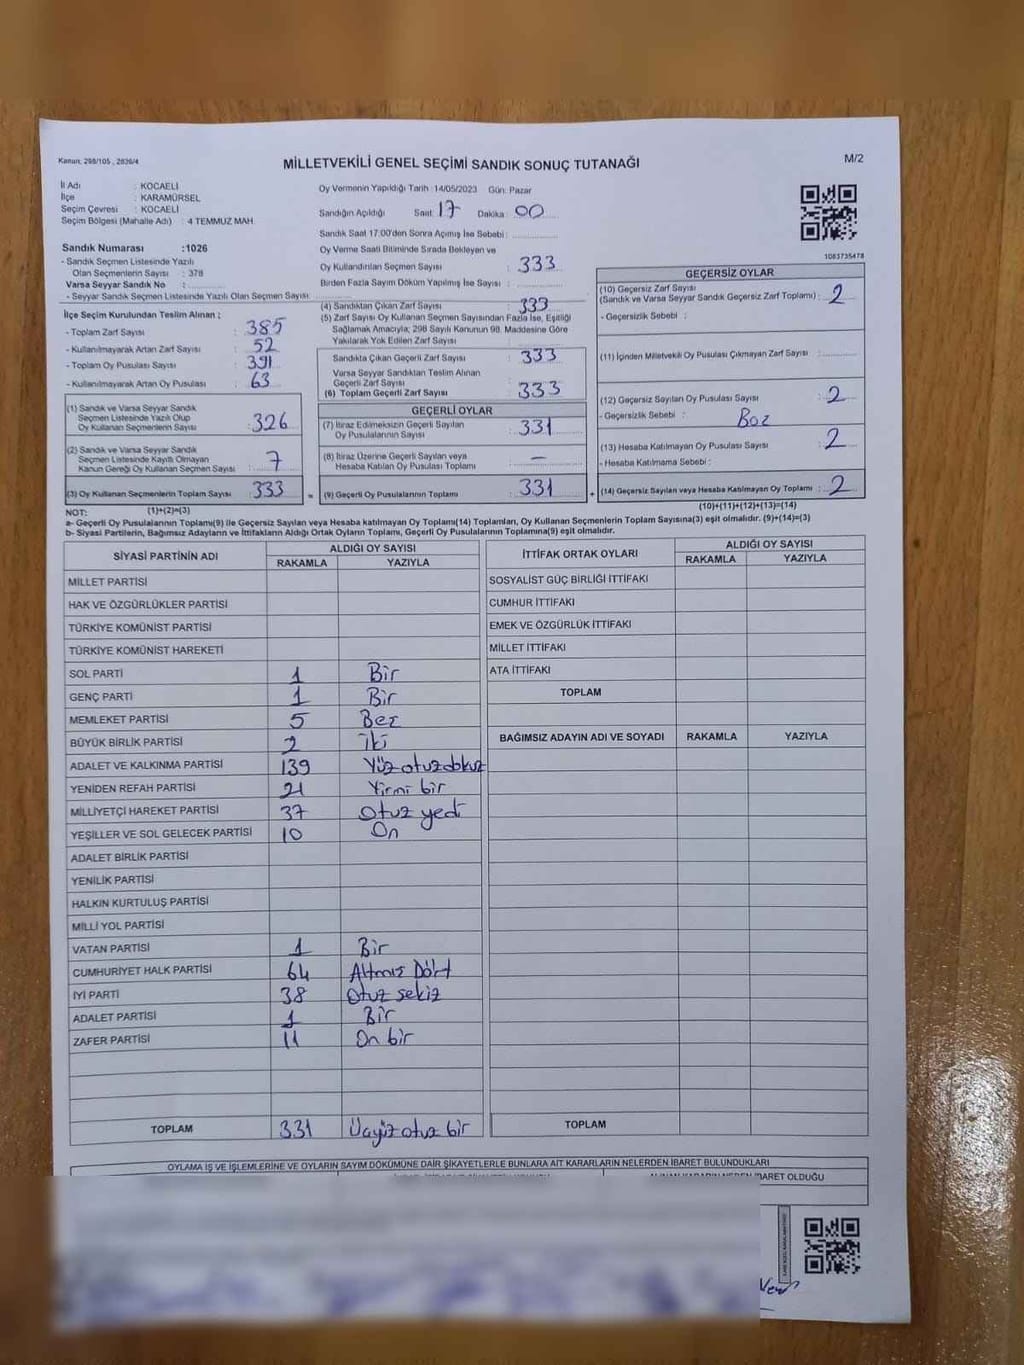 Kanun, 298/105 , 2839/4
MİLLETVEKİLİ GENEL SEÇİMİ SANDIK SONUÇ TUTANAĞI
M/2
İl Adı : KOCAELİ
İlçe : KARAMÜRSEL
Seçim Çevresi : KOCAELİ
Seçim Bölgesi (Mahalle Adı) : 4 TEMMUZ MAH.
Sandık Numarası :1026
- Sandık Seçmen Listesinde Yazılı
Olan Seçmenlerin Sayısı : 378
Varsa Seyyar Sandık No :
- Seyyar Sandık Seçmen Listesinde Yazılı Olan Seçmen Sayısı:
Oy Vermenin Yapıldığı Tarih :14/05/2023 Gün: Pazar
Sandığın Açıldığı Saat: 17 Dakika : 00
Sandık Saat 17:00'den Sonra Açımış İse Sebebi :
Oy Verme Saati Bitiminde Sırada Bekleyen ve
Oy Kullandırılan Seçmen Sayısı : 333
Birden Fazla Sayım Döküm Yapılmış İse Sayısı :
1083735478
İlçe Seçim Kurulundan Teslim Alınan ;
- Toplam Zarf Sayısı : 385
- Kullanılmayarak Artan Zarf Sayısı : 52
- Toplam Oy Pusulası Sayısı : 391
- Kullanılmayarak Artan Oy Pusulası : 63
(1) Sandık ve Varsa Seyyar Sandık
Seçmen Listesinde Yazılı Olup
Oy Kullanan Seçmenlerin Sayısı : 326
(2) Sandık ve Varsa Seyyar Sandık
Seçmen Listesinde Kayıtlı Olmayan
Kanun Gereği Oy Kullanan Seçmen Sayısı : 7
(3) Oy Kullanan Seçmenlerin Toplam Sayısı : 333 =
(4) Sandıktan Çıkan Zarf Sayısı : 333
(5) Zarf Sayısı Oy Kullanan Seçmen Sayısından Fazla İse, Eşitliği
Sağlamak Amacıyla; 298 Sayılı Kanunun 98. Maddesine Göre
Yakılarak Yok Edilen Zarf Sayısı :
Sandıkta Çıkan Geçerli Zarf Sayısı : 333
Varsa Seyyar Sandıktan Teslim Alınan
Geçerli Zarf Sayısı
(6) Toplam Geçerli Zarf Sayısı : 333
GEÇERLİ OYLAR
(7) İtiraz Edilmeksizin Geçerli Sayılan
Oy Pusulalarının Sayısı : 331
(8) İtiraz Üzerine Geçerli Sayılan veya
Hesaba Katılan Oy Pusulası Toplamı : –
(9) Geçerli Oy Pusulalarının Toplamı : 331 +
GEÇERSİZ OYLAR
(10) Geçersiz Zarf Sayısı
(Sandık ve Varsa Seyyar Sandık Geçersiz Zarf Toplamı) : 2
- Geçersizlik Sebebi :
(11) İçinden Milletvekili Oy Pusulası Çıkmayan Zarf Sayısı :
(12) Geçersiz Sayılan Oy Pusulası Sayısı : 2
- Geçersizlik Sebebi : Boz
(13) Hesaba Katılmayan Oy Pusulası Sayısı : 2
- Hesaba Katılmama Sebebi :
(14) Geçersiz Sayılan veya Hesaba Katılmayan Oy Toplamı : 2
NOT: (1)+(2)=(3) (10)+(11)+(12)+(13)=(14)
a- Geçerli Oy Pusulalarının Toplamı(9) ile Geçersiz Sayılan veya Hesaba katılmayan Oy Toplamı(14) Toplamları, Oy Kullanan Seçmenlerin Toplam Sayısına(3) eşit olmalıdır. (9)+(14)=(3)
b- Siyasi Partilerin, Bağımsız Adayların ve İttifakların Aldığı Ortak Oyların Toplamı, Geçerli Oy Pusulalarının Toplamına(9) eşit olmalıdır.
SİYASİ PARTİNİN ADI ALDIĞI OY SAYISI
RAKAMLA YAZIYLA
MİLLET PARTİSİ
HAK VE ÖZGÜRLÜKLER PARTİSİ
TÜRKİYE KOMÜNİST PARTİSİ
TÜRKİYE KOMÜNİST HAREKETİ
SOL PARTİ 1 Bir
GENÇ PARTİ 1 Bir
MEMLEKET PARTİSİ 5 Beş
BÜYÜK BİRLİK PARTİSİ 2 İki
ADALET VE KALKINMA PARTİSİ 139 Yüz otuz dokuz
YENİDEN REFAH PARTİSİ 21 Yirmi bir
MİLLİYETÇİ HAREKET PARTİSİ 37 Otuz yedi
YEŞİLLER VE SOL GELECEK PARTİSİ 10 On
ADALET BİRLİK PARTİSİ
YENİLİK PARTİSİ
HALKIN KURTULUŞ PARTİSİ
MİLLİ YOL PARTİSİ
VATAN PARTİSİ 1 Bir
CUMHURİYET HALK PARTİSİ 64 Altmış Dört
İYİ PARTİ 38 Otuz sekiz
ADALET PARTİSİ 1 Bir
ZAFER PARTİSİ 11 On bir
TOPLAM 331 Üçyüz otuz bir
İTTİFAK ORTAK OYLARI ALDIĞI OY SAYISI
RAKAMLA YAZIYLA
SOSYALİST GÜÇ BİRLİĞİ İTTİFAKI
CUMHUR İTTİFAKI
EMEK VE ÖZGÜRLÜK İTTİFAKI
MİLLET İTTİFAKI
ATA İTTİFAKI
TOPLAM
BAĞIMSIZ ADAYIN ADI VE SOYADI RAKAMLA YAZIYLA
TOPLAM
OYLAMA İŞ VE İŞLEMLERİNE VE OYLARIN SAYIM DÖKÜMÜNE DAİR ŞİKAYETLERLE BUNLARA AİT KARARLARIN NELERDEN İBARET BULUNDUKLARI
ALINAN KARARIN NEDEN İBARET OLDUĞU